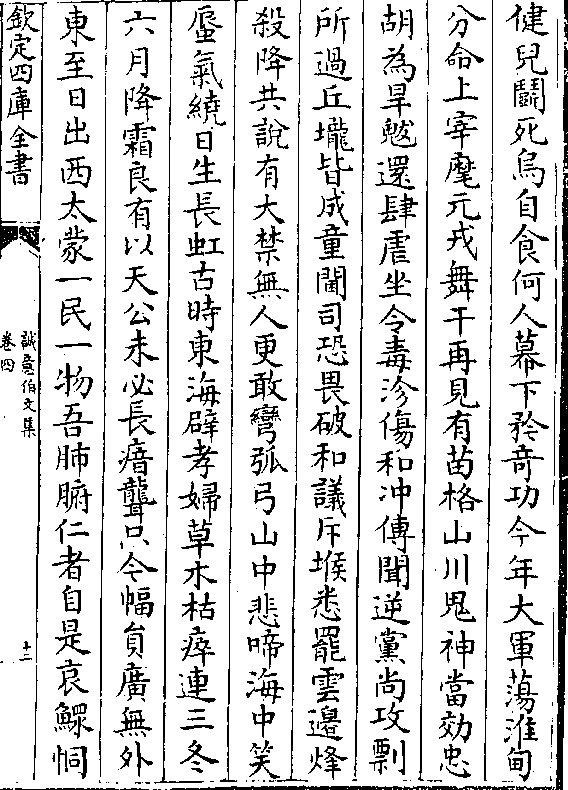 健兒鬬死烏自食何人幕下矜竒功今年大軍蕩淮甸
分命上宰麾元戎舞干再見有苗格山川鬼神當効忠
胡為旱魃還肆虐坐令毒沴傷和沖傳聞逆黨尚攻剽
所過丘壠皆成童閫司恐畏破和議斥堠悉罷雲邊烽
殺降共説有大禁無人更敢彎弧弓山中悲啼海中笑
蜃氣繞日生長虹古時東海辟孝婦草木枯瘁連三冬
六月降霜良有以天公未必長瘖聾只今幅員廣無外
東至日出西太蒙一民一物吾肺腑仁者自是哀鰥恫
欽定四庫全書
誠意伯文集
卷四
十二